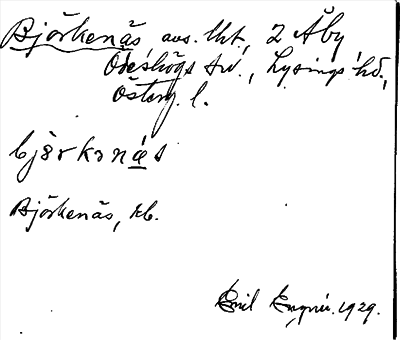 Björkenäs avs. lht, 2 Åby
Ödeshögs sn., Lysings hd.,
Österg. l.
bjørkɜnǽs
Björkenäs, kb.
Emil Engnér. 1929.